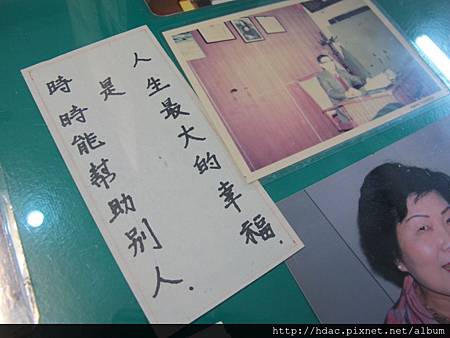 人生最大的幸福.
是
時時能幫助別人.
http://hdac.pixnet.net/album